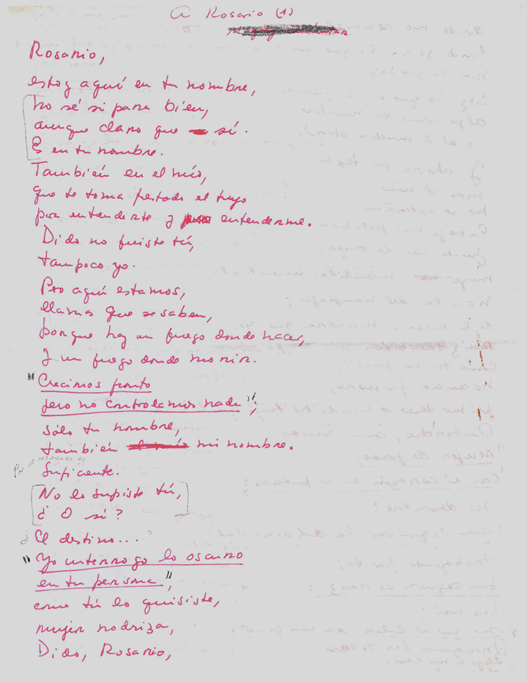 A Rosario (1)
Rosario,
estoy aquí en tu nombre,
no sé si para bien,
aunque claro que sí.
Es en tu nombre.
También en el mío,
que te toma prestado el tuyo
para entenderte y entenderme.
Dido no fuiste tú,
tampoco yo.
Pero aquí estamos,
llama que se saben,
porque hay un fuego donde nacer,
y un fuego donde morir.
"Crecimos pronto
pero no controlamos nada",
sólo tu nombre,
también mi nombre.
Suficiente.
No lo supiste tú,
¿O sí?
El destino...
"Yo interrogo lo oscuro
en tu persona",
como tú lo quisiste,
mujer nodriza,
Dido, Rosario,